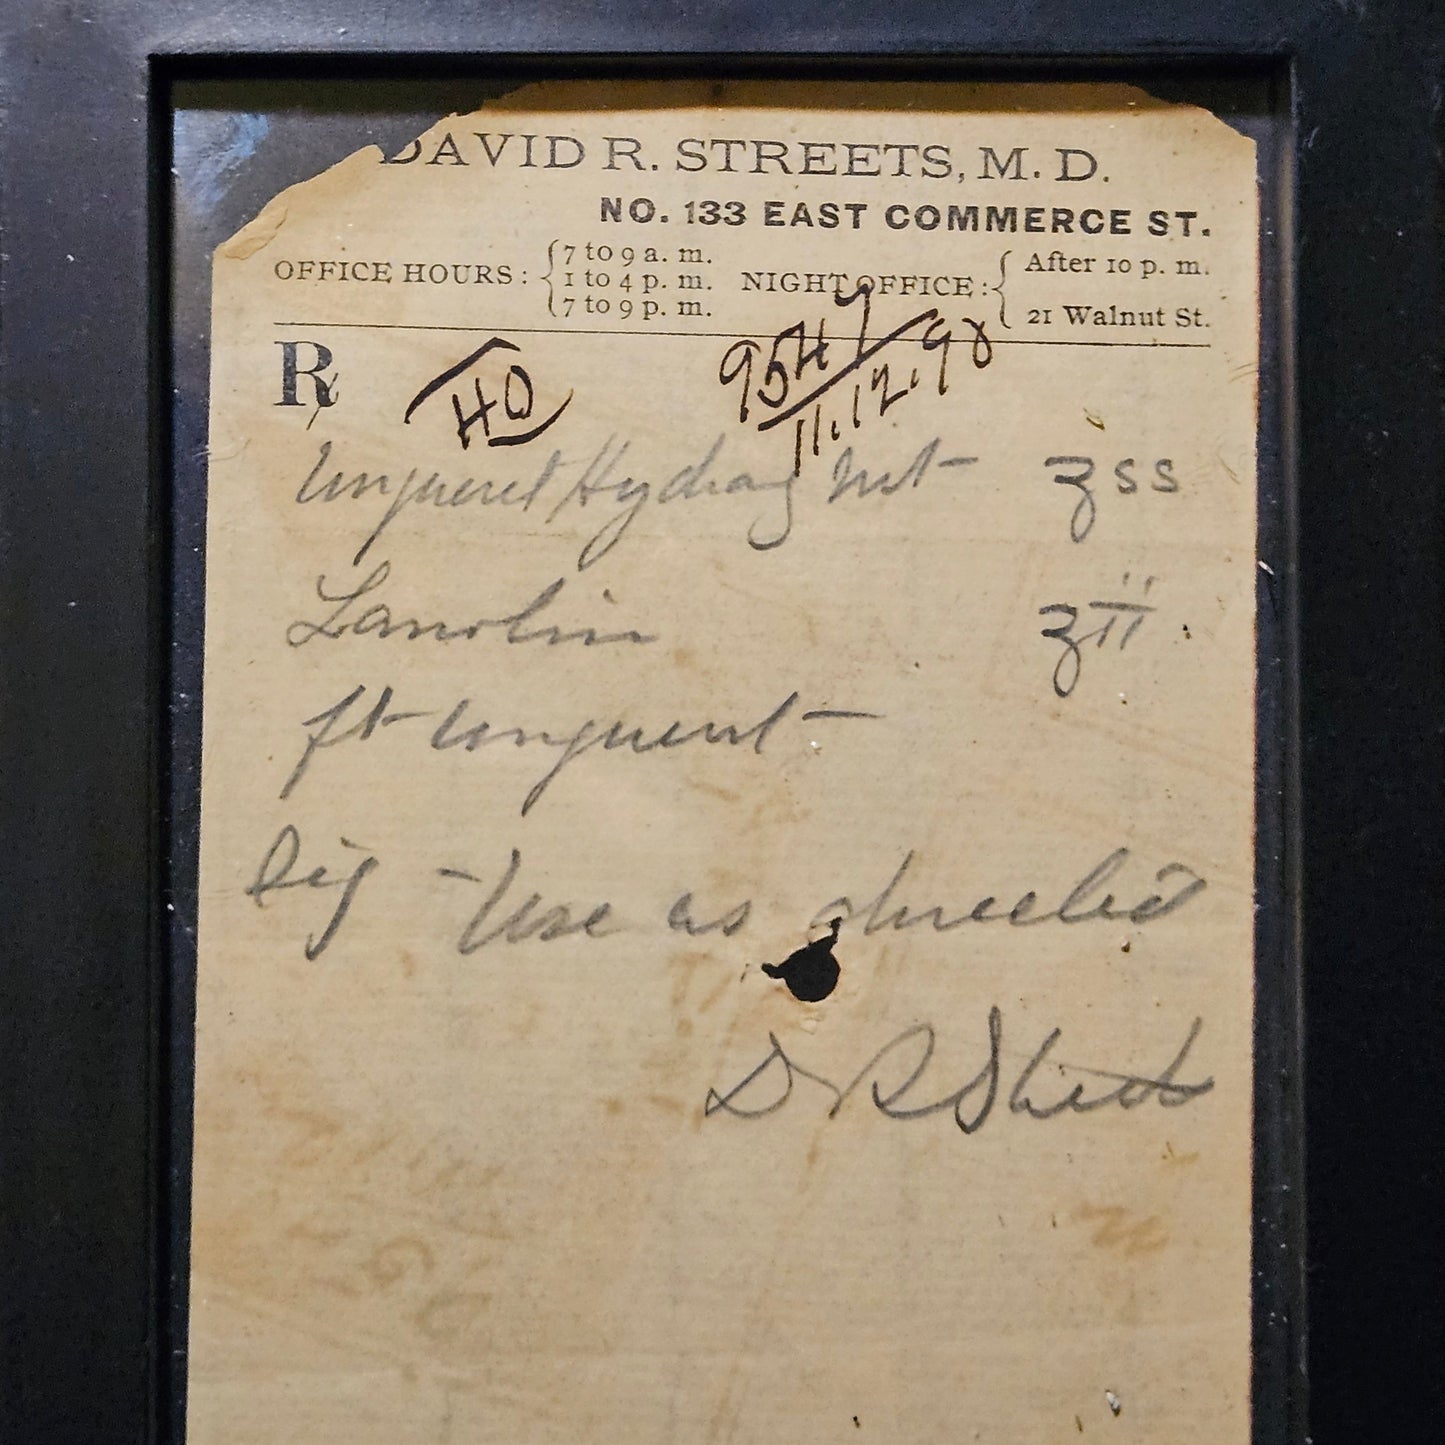 DAVID R. STREETS, M. D.
NO. 133 EAST COMMERCE ST.
OFFICE HOURS: 7 to 9 a. m. 1 to 4 p. m. 7 to 9 p. m. NIGHT OFFICE: After 10 p. m. 21 Walnut St.
℞ 40 95447
11.12.98
Unguent Hydrarg Nit ʒss
Lanolin ʒii
ft unguent
Sig - Use as directed
D R Streets